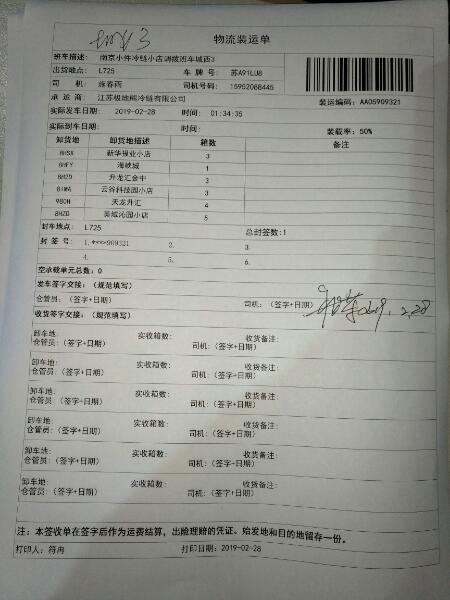 物流装运单
班车描述: 南京小件冷链小店调拨班车城西3
出货地点: L725 车牌号: 苏A91LU8
司机: 施春雨 司机号码: 15952088445
承运商: 江苏极地熊冷链有限公司 装运编码: AA05909321
实际发车日期: 2019-02-28 时间: 01:34:35
实际到车日期: 时间: 装载率: 50%
卸货地 卸货地描述 箱数 备注
8HSX 新华报业小店 3
8HFY 海峡城 1
8HZD 升龙汇金中 3
8HWA 云谷科技园小店 3
98DH 天龙升汇 4
8HZD 吴城沁园小店 5
封车地点: L725 总封签数:1
封签号: 1.****909321 2. 3.
4. 5. 6.
空承载单元总数: 0
发车签字交接: (规范填写)
仓管员: (签字+日期) 司机: (签字+日期) 2019.2.28
收货签字交接: (规范填写)
卸车地: 实收箱数: 收货备注:
仓管员: (签字+日期) 司机: (签字+日期)
卸车地: 实收箱数: 收货备注:
仓管员: (签字+日期) 司机: (签字+日期)
卸车地: 实收箱数: 收货备注:
仓管员: (签字+日期) 司机: (签字+日期)
卸车地: 实收箱数: 收货备注:
仓管员: (签字+日期) 司机: (签字+日期)
卸车地: 实收箱数: 收货备注:
仓管员: (签字+日期) 司机: (签字+日期)
卸车地: 实收箱数: 收货备注:
仓管员: (签字+日期) 司机: (签字+日期)
注: 本签收单在签字后作为运费结算, 出险理赔的凭证。始发地和目的地留存一份。
打印人: 符冉 打印日期: 2019-02-28